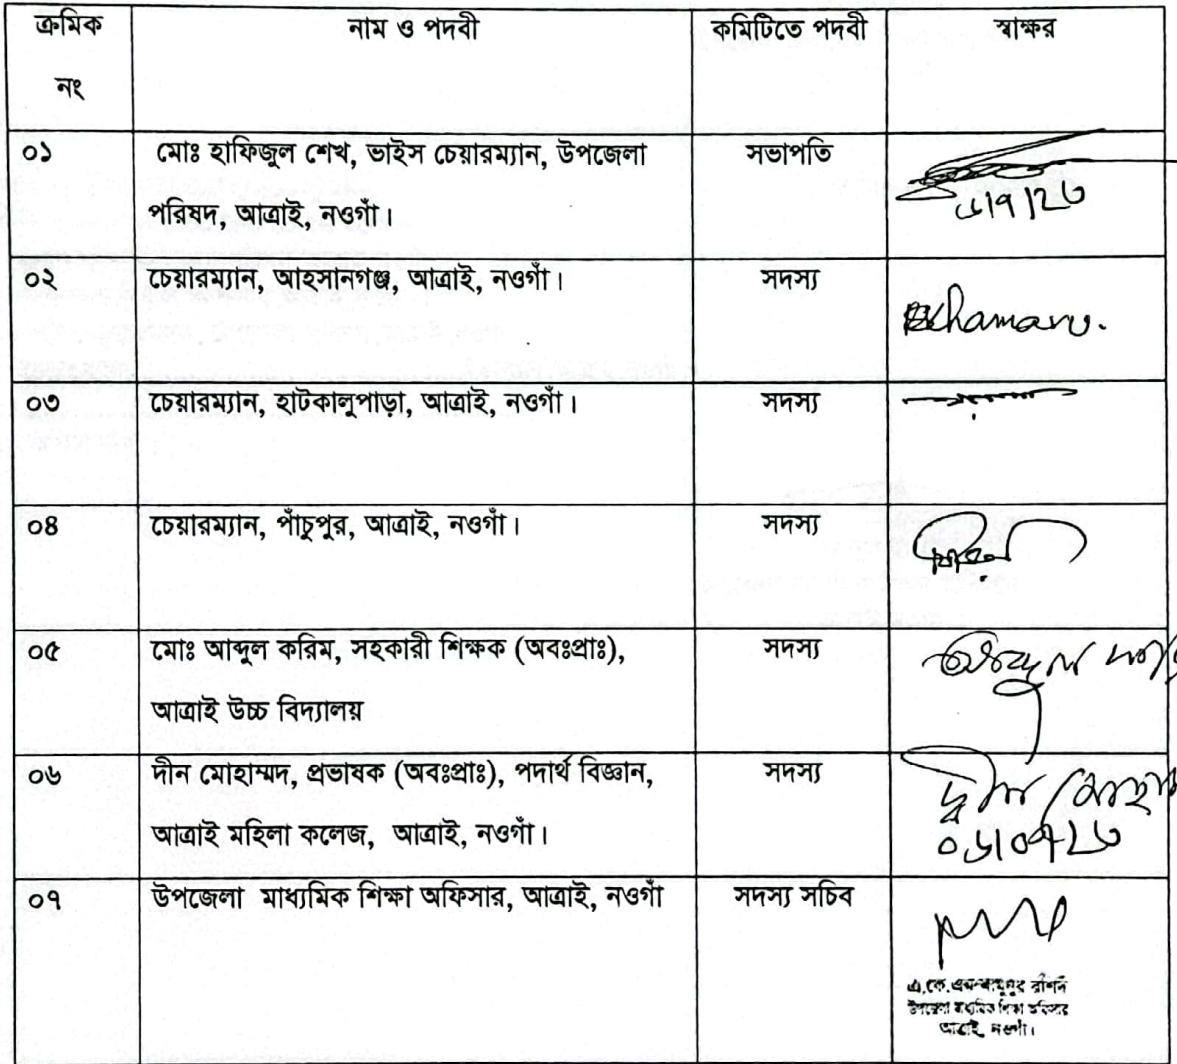 ক্রমিক নাম ও পদবী কমিটিতে পদবী স্বাক্ষর
নং
০১ মোঃ হাফিজুল শেখ, ভাইস চেয়ারম্যান, উপজেলা সভাপতি
পরিষদ, আত্রাই, নওগাঁ।
০২ চেয়ারম্যান, আহসানগঞ্জ, আত্রাই, নওগাঁ। সদস্য
০৩ চেয়ারম্যান, হাটকালুপাড়া, আত্রাই, নওগাঁ। সদস্য
০৪ চেয়ারম্যান, পাঁচুপুর, আত্রাই, নওগাঁ। সদস্য
০৫ মোঃ আব্দুল করিম, সহকারী শিক্ষক (অবঃপ্রাঃ), সদস্য
আত্রাই উচ্চ বিদ্যালয়
০৬ দীন মোহাম্মদ, প্রভাষক (অবঃপ্রাঃ), পদার্থ বিজ্ঞান, সদস্য
আত্রাই মহিলা কলেজ, আত্রাই, নওগাঁ।
০৭ উপজেলা মাধ্যমিক শিক্ষা অফিসার, আত্রাই, নওগাঁ সদস্য সচিব
উপজেলা মাধ্যমিক শিক্ষা অফিসার
আত্রাই, নওগাঁ।